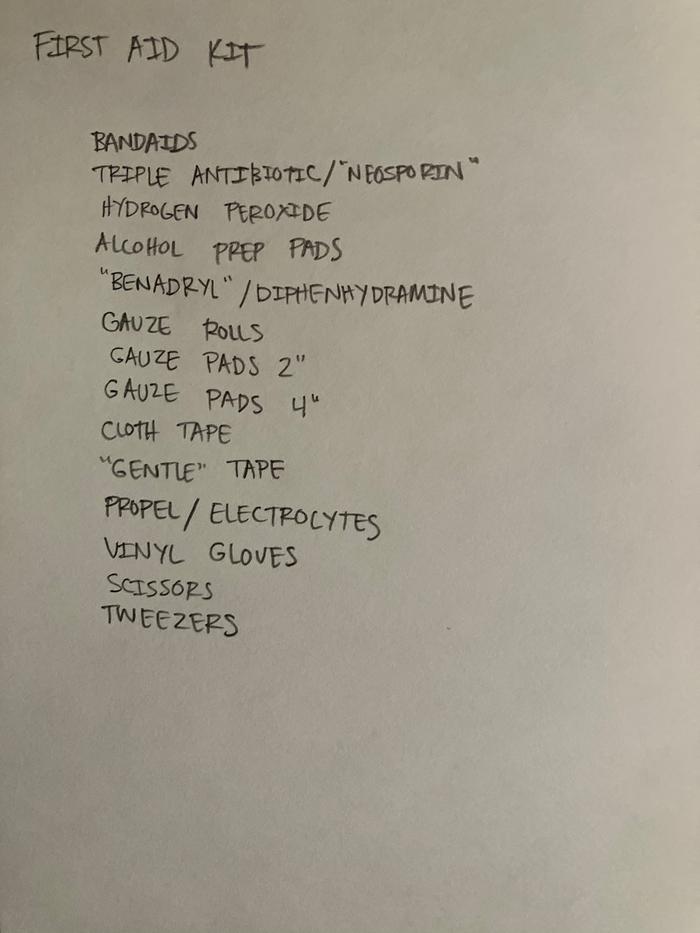 FIRST AID KIT
BANDAIDS
TRIPLE ANTIBIOTIC/"NEOSPORIN"
HYDROGEN PEROXIDE
ALCOHOL PREP PADS
"BENADRYL"/DIPHENHYDRAMINE
GAUZE ROLLS
GAUZE PADS 2"
GAUZE PADS 4"
CLOTH TAPE
"GENTLE" TAPE
PROPEL/ELECTROCYTES
VINYL GLOVES
SCISSORS
TWEEZERS